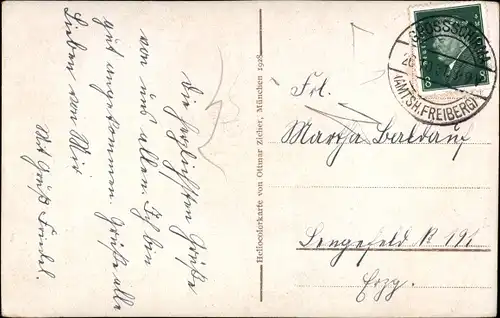 Die herzlichsten Grüße
von uns allen. Ich bin
gut angekommen. Grüße alle
Lieben von Mir
Mit Gruß Friedel.
Heliocolorkarte von Ottmar Zieher, München 1928
GROSSSCHIRMA
(AMTSH. FREIBERG)
8
8
Frl.
Martha Baldauf
Lengefeld R 191
Erzg.